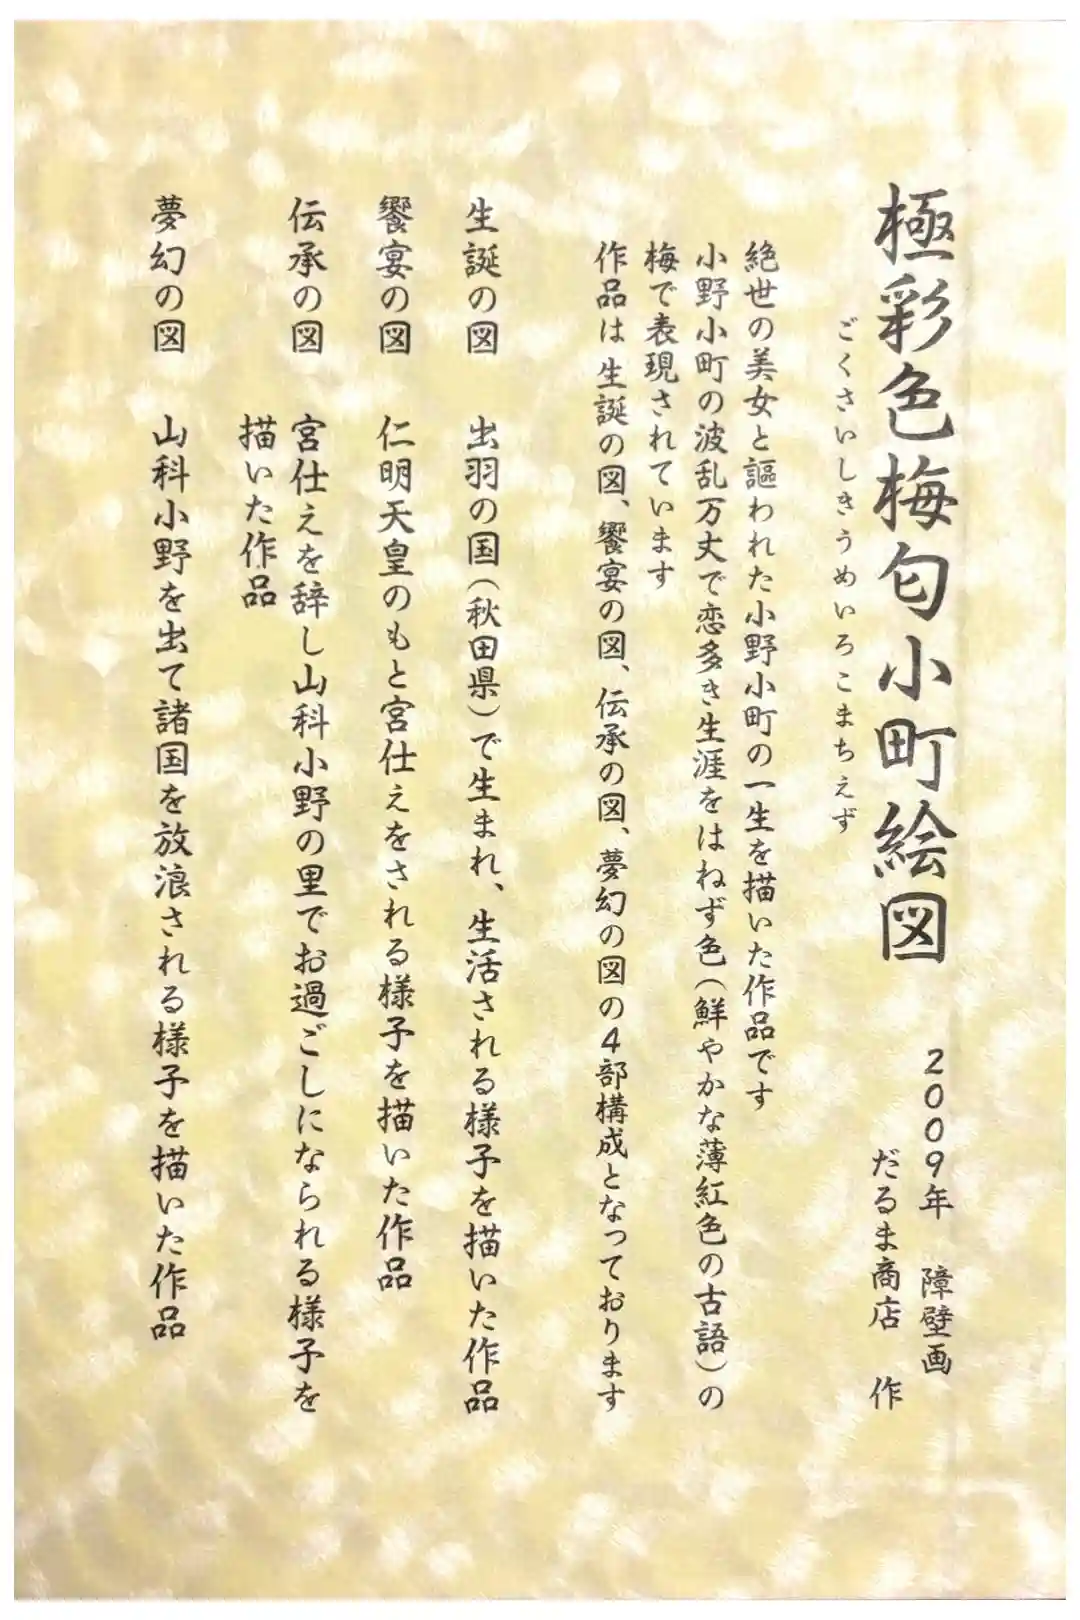 極彩色梅匂小町絵図
ごくさいしきうめいろこまちえず
2009年 障壁画
だるま商店 作
絶世の美女と謳われた小野小町の一生を描いた作品です
小野小町の波乱万丈で恋多き生涯をはねず色(鮮やかな薄紅色の古語)の
梅で表現されています
作品は生誕の図、饗宴の図、伝承の図、夢幻の図の4部構成となっております
生誕の図 出羽の国(秋田県)で生まれ、生活される様子を描いた作品
饗宴の図 仁明天皇のもと宮仕えをされる様子を描いた作品
伝承の図 宮仕えを辞し山科小野の里でお過ごしになられる様子を
描いた作品
夢幻の図 山科小野を出て諸国を放浪される様子を描いた作品